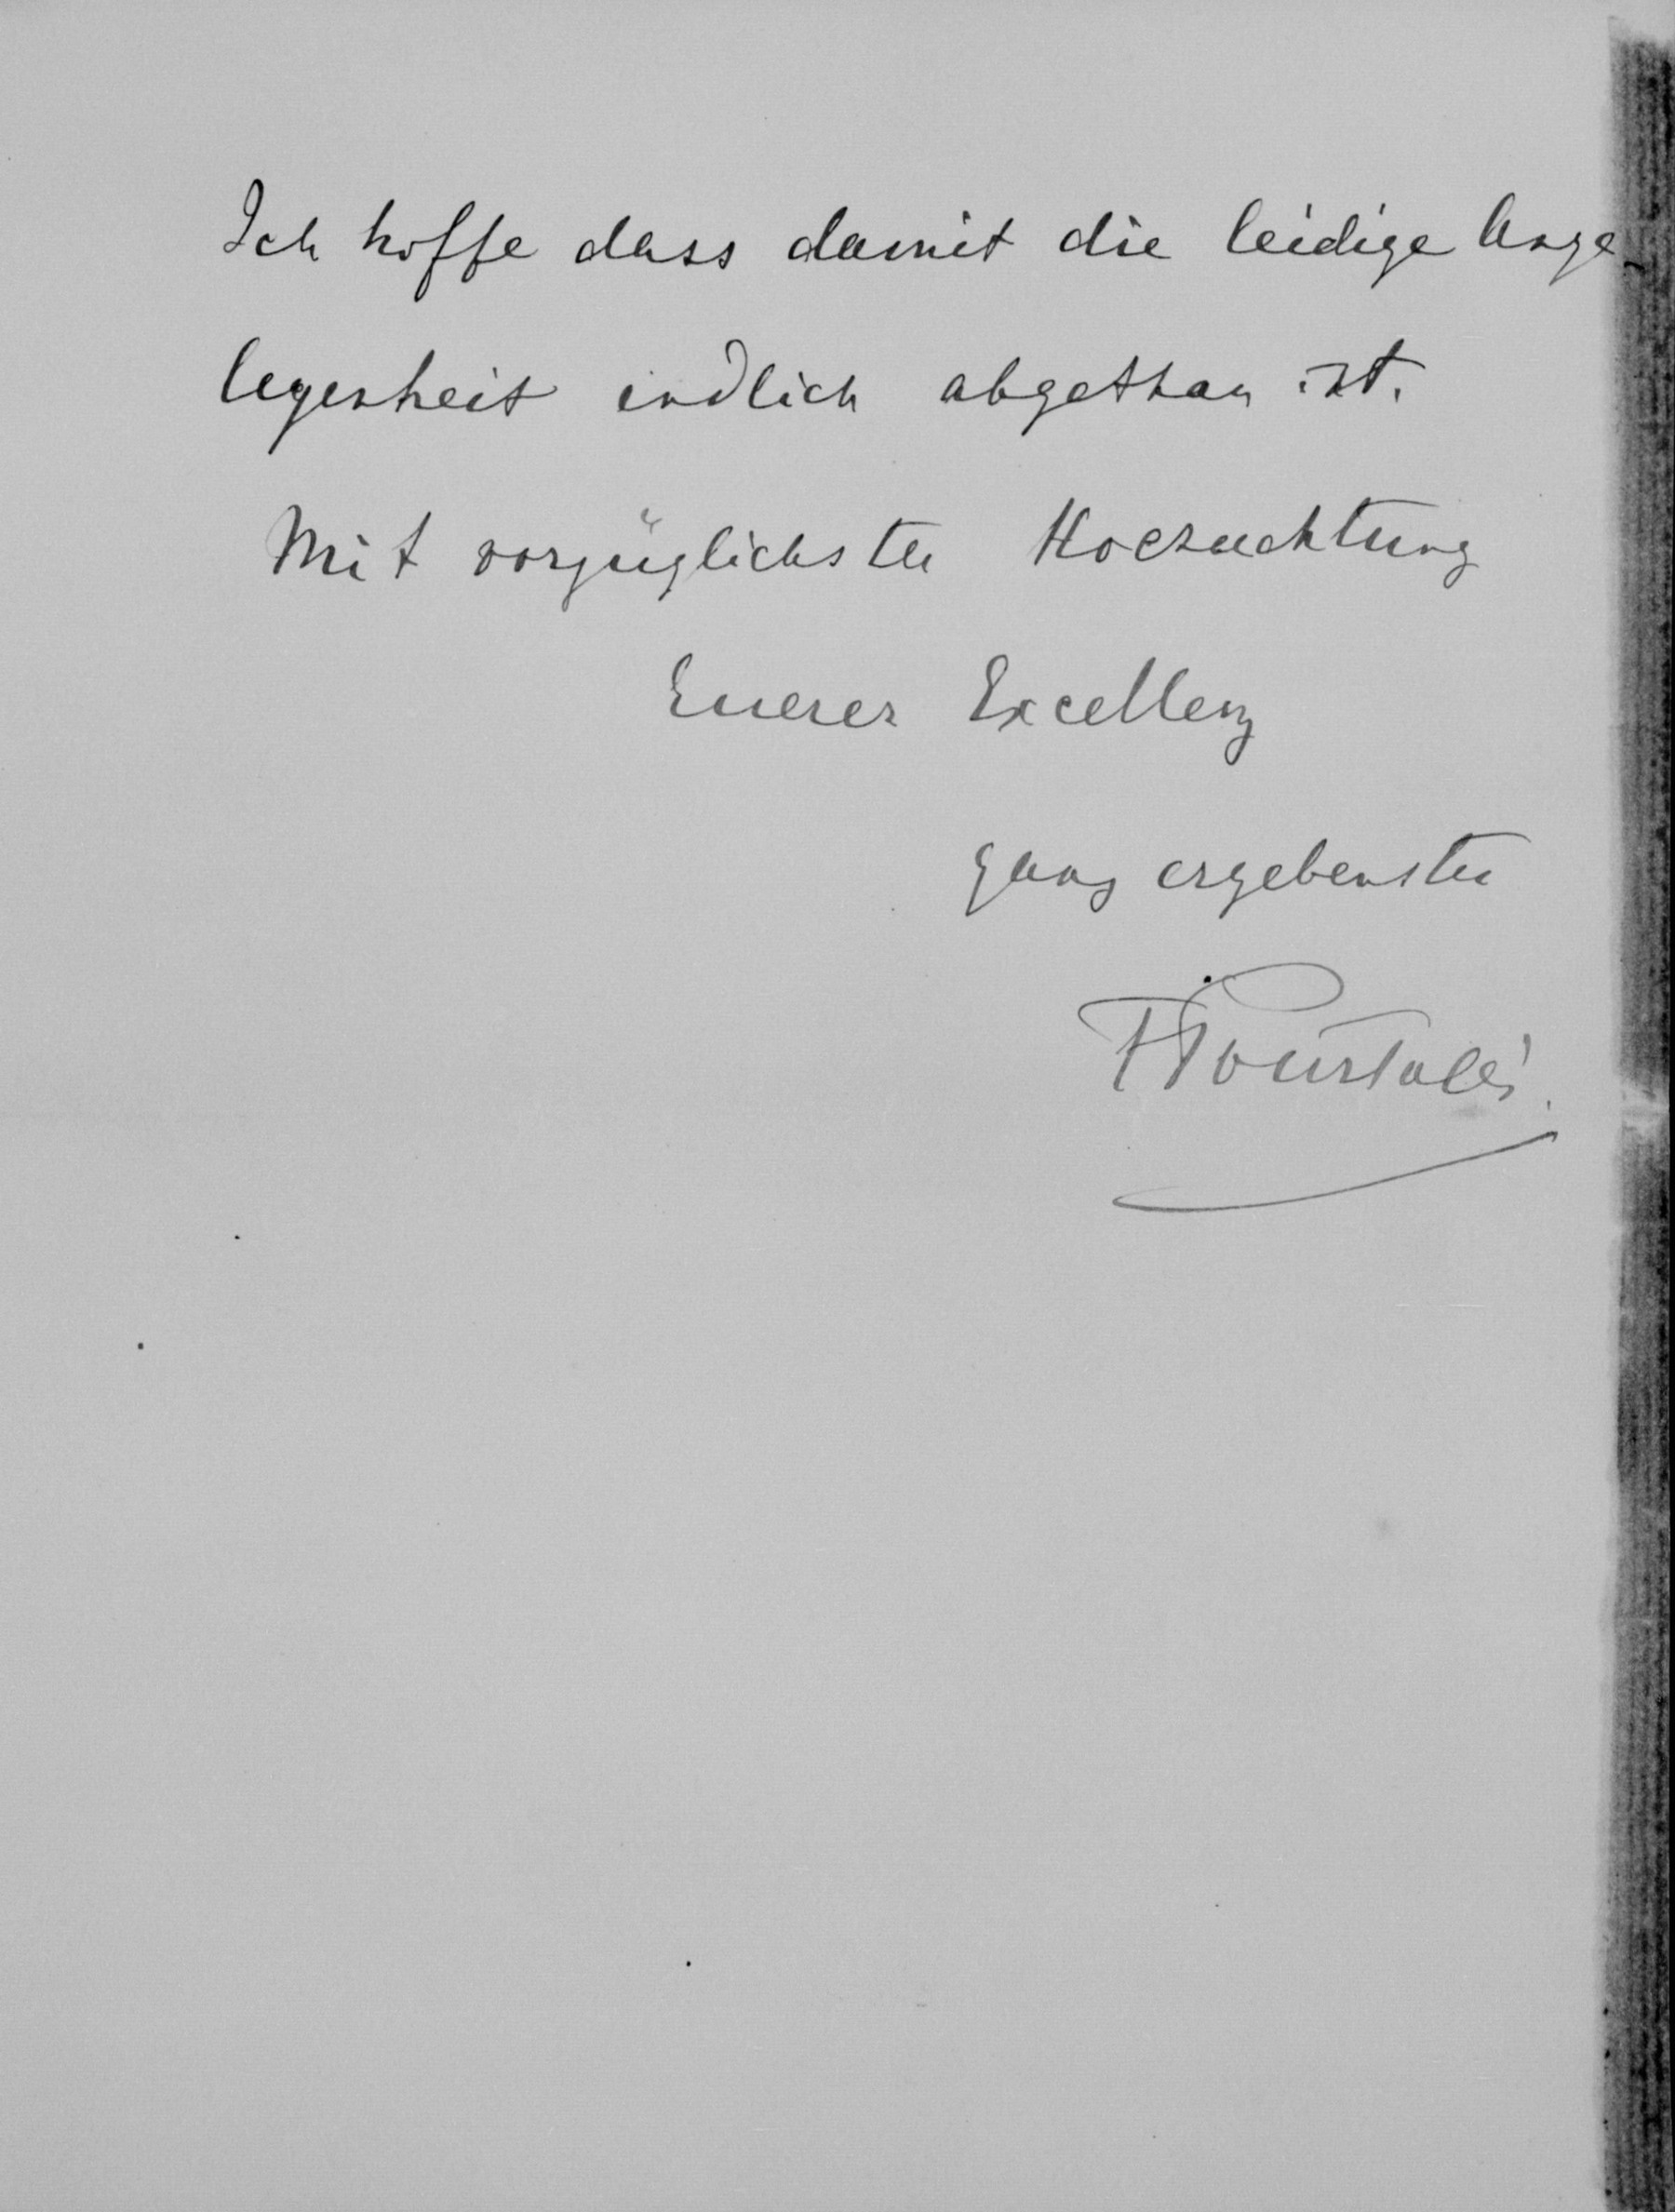 Ich hoffe dass damit die leidige Ange-
legenheit endlich abgethan ist.
Mit vorzüglichster Hochachtung
Euerer Excellenz
ganz ergebenster
FPourtalès